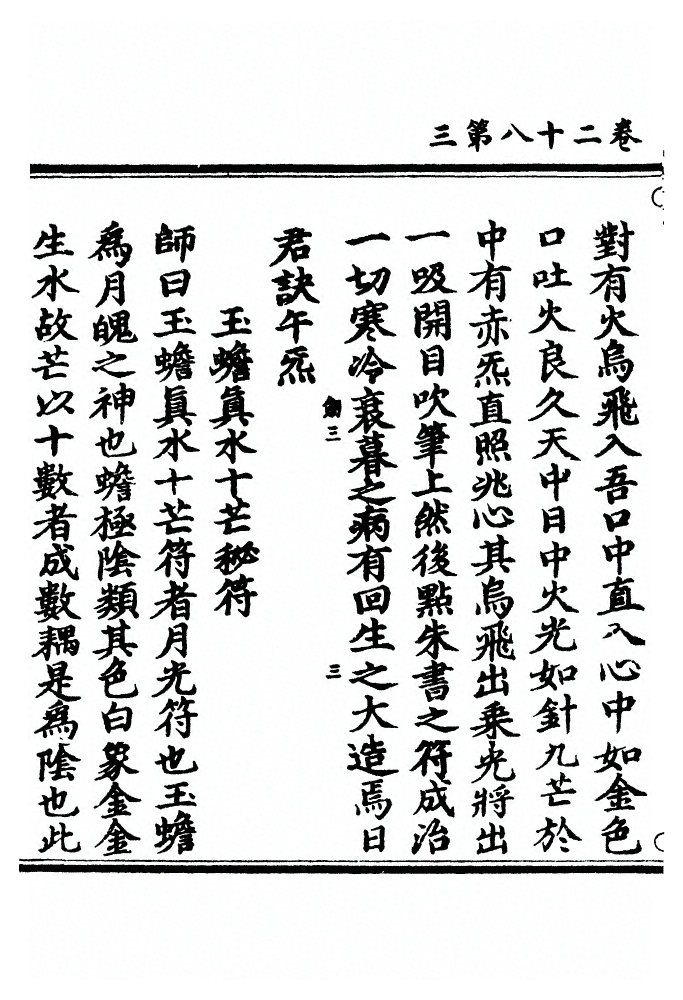 卷二十八第三
對有火烏飛入吾口中直入心中如金色
口吐火良久天中日中火光如針九芒於
中有赤炁直照兆心其烏飛出乗光將出
一吸開目吹筆上然後點朱書之符成治
一切寒冷衰暮之病有回生之大造焉日
劍三
三
君訣午炁
玉蟾真水十芒秘符
師曰玉蟾真水十芒符者月光符也玉蟾
爲月魄之神也蟾極陰類其色白象金金
生水故芒以十數者成數耦是爲陰也此